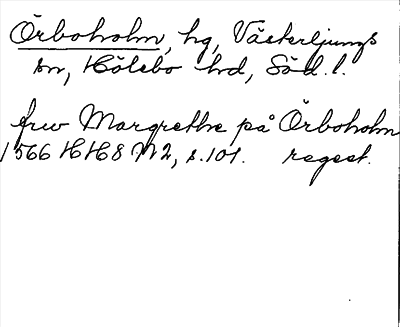 Örboholm, hg, Västerljungs
sn, Hölebo hd, Söd. l.
fru Margrethe på Örboholm
1566 HH8 N2, s. 101. regest.